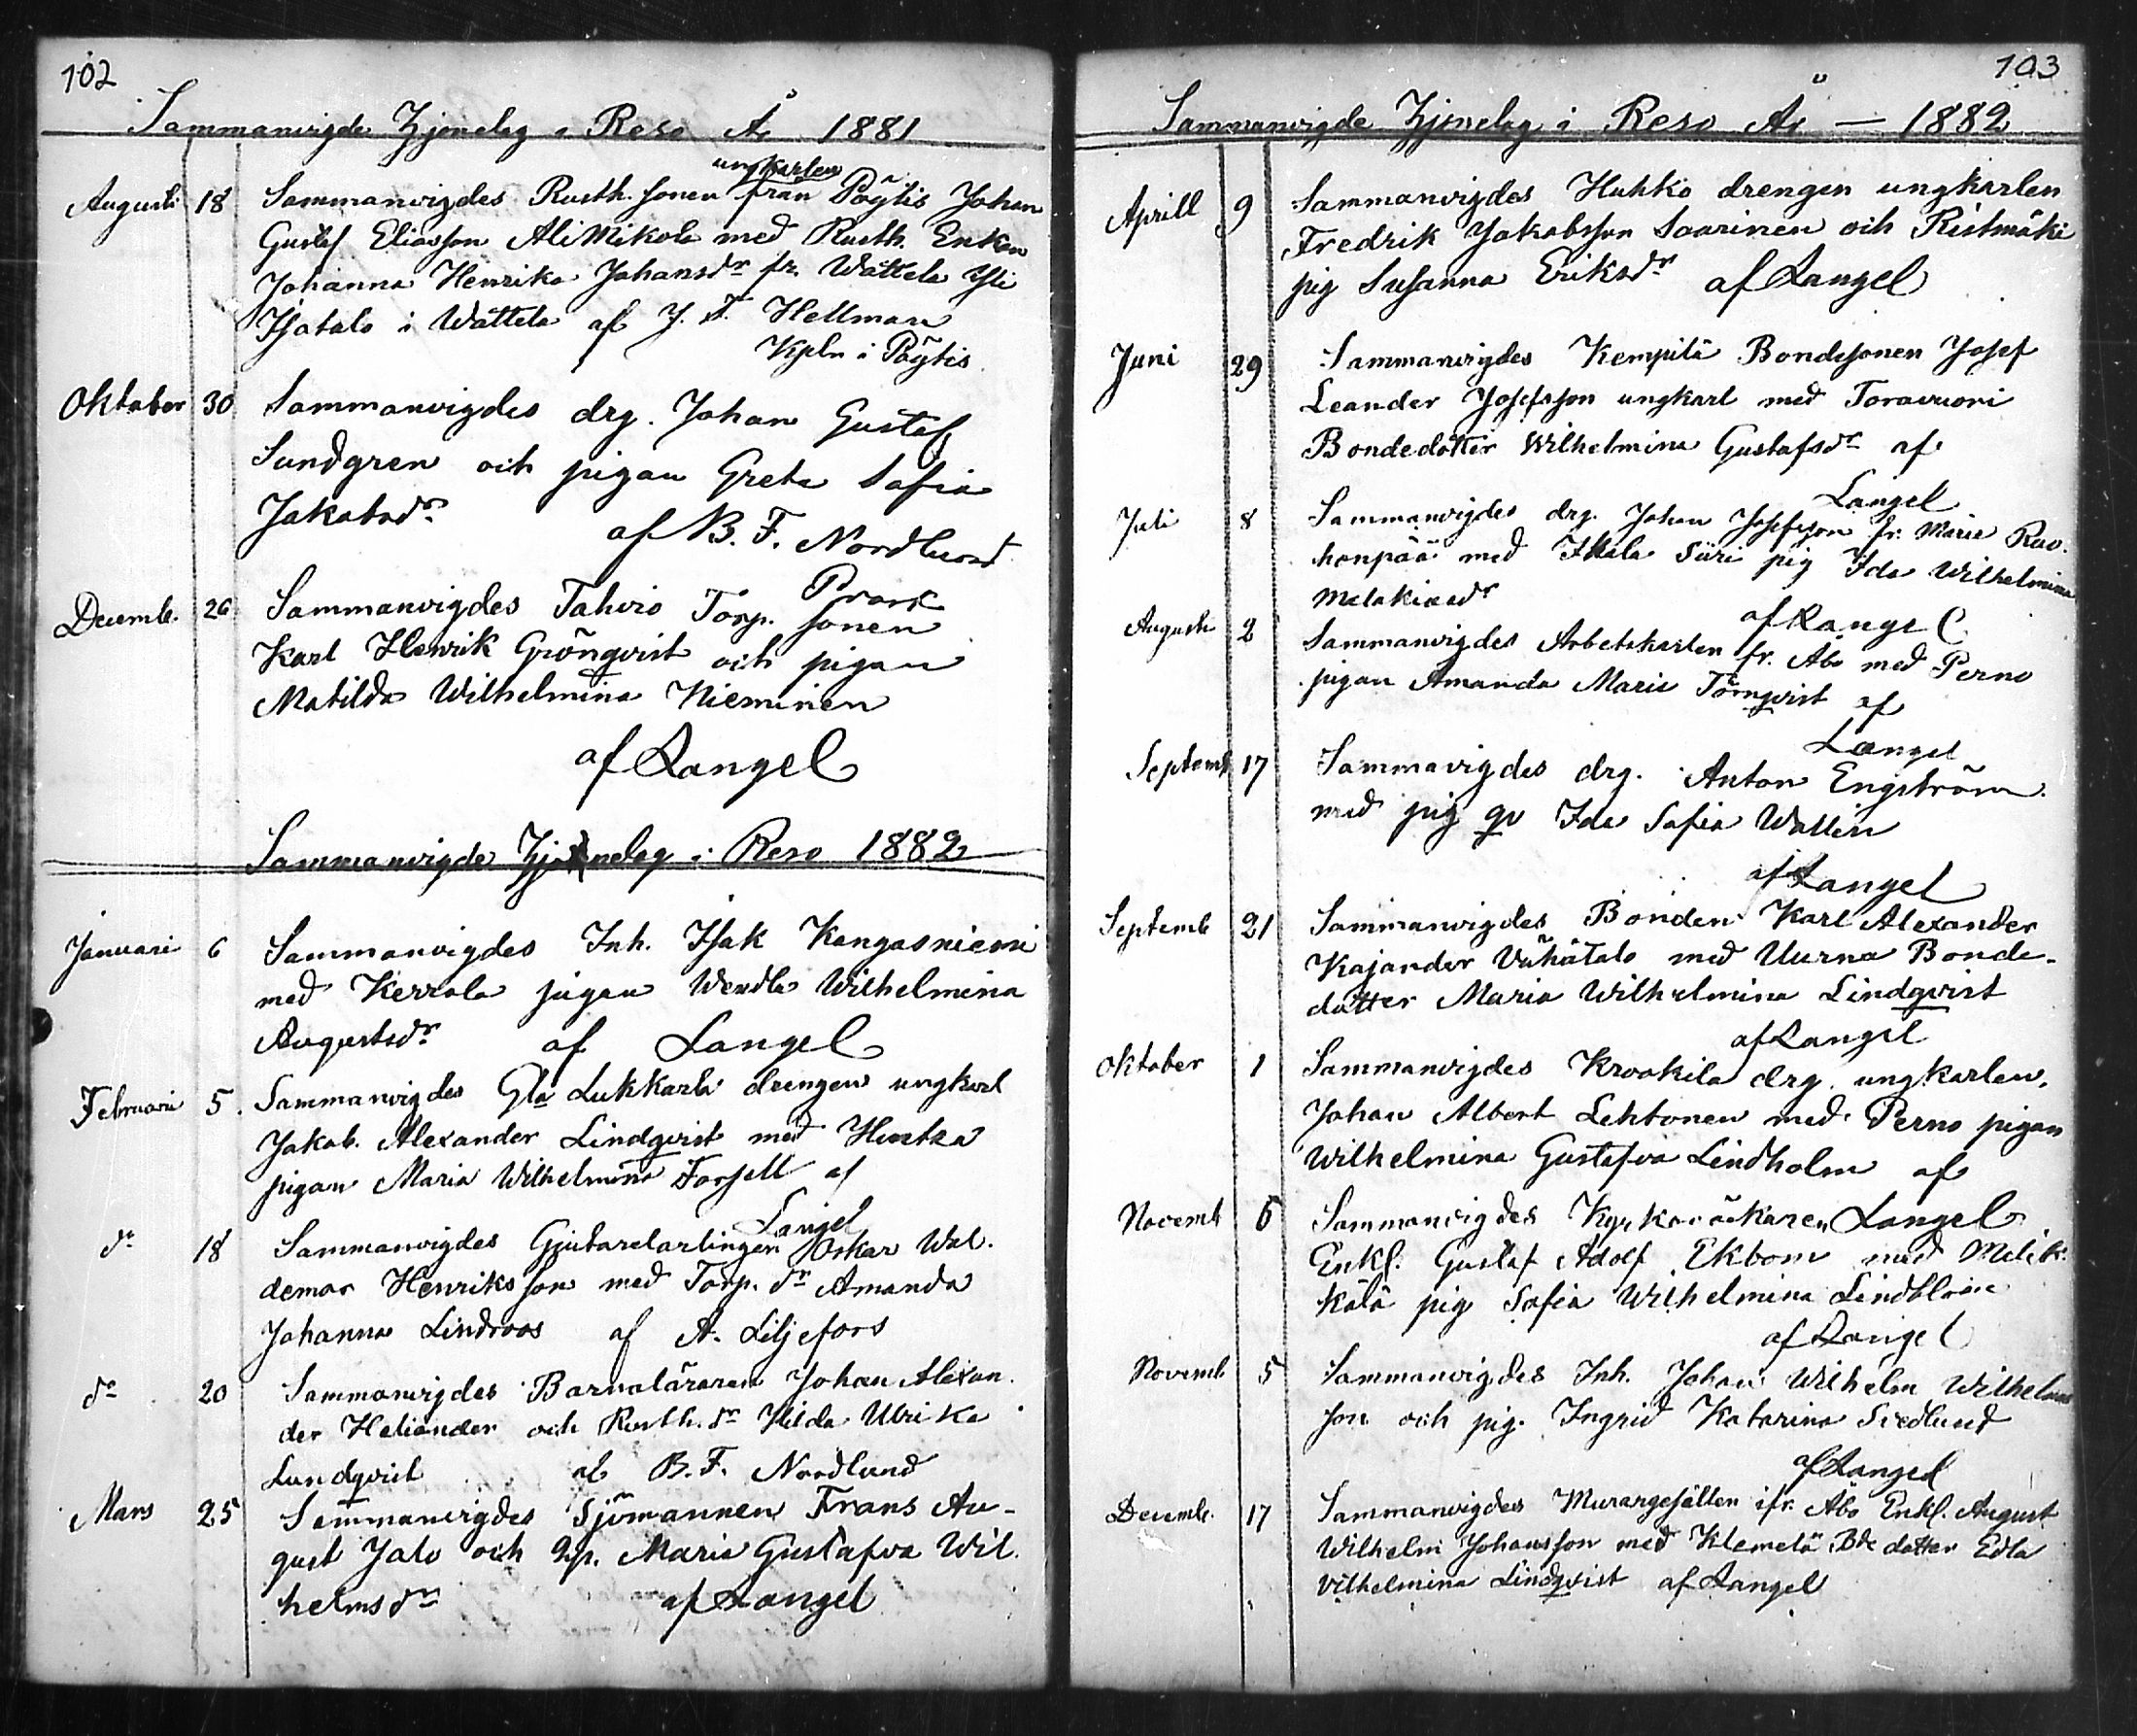 102
Sammanvigde Hjonelag i Reso År 1881
ungkarlen
Augusti 18 Sammanvigdes Rusth. sonen från Pöytis Johan
Gustaf Eliasson Ali Mikola med Rusth. Enkan
Johanna Henrika Johansdr fr. Wättelä Yli
Isotalo i Wättelä af J. F. Hellman
Kpln i Pöytis
Oktober 30 Sammanvigdes drg. Johan Gustaf
Sundgren och pigan Greta Sofia
Jakobsdr af B. F. Nordlund
Prark
Decemb. 26 Sammanvigdes Tahvio Torp. sonen
Karl Henrik Grönqvist och pigan
Matilda Wilhelmina Nieminen
af Langel
Sammanvigde Hjonelag i Reso 1882
Januari 6 Sammanvigdes Inh. Isak Kangasniemi
med Kerrola pigan Wendla Wilhelmina
Augustsdr af Langel
Februari 5. Sammanvigdes Gla Lukkarla drengen ungkarl
Jakob Alexander Lindqvist med Huntka
pigan Maria Wilhelmina Forsell af
Langel
dr 18 Sammanvigdes Gjutarelärlingen Oskar Wal.
demar Henriksson med Torp. dr Amanda
Johanna Lindroos af A. Liljefors
dr 20 Sammanvigdes Barnaläraren Johan Alexan.
der Heliander och Rusth. dr Hilda Ulrika
Lundqvist af B. F. Nordlund
Mars 25 Sammanvigdes Sjömannen Frans Au-
gust Jalo och Qp. Maria Gustafva Wil.
helmsdr af Langel
103
Sammanvigde Hjonelag i Reso År — 1882
Aprill 9 Sammanvigdes Huhko drengen ungkarlen
Fredrik Jakobsson Saarinen och Ristmäki
pig Susanna Eriksdr af Langel
Juni 29 Sammanvigdes Kempilä Bondesonen Josef
Leander Josefsson ungkarl med Toravuori
Bondedotter Wilhelmina Gustafsdr af
Langel
Juli 8 Sammanvigdes drg. Johan Josefsson fr. Marie Rav.
honpää med Ihala Siiri pig Ida Wilhelmina
Melakiasdr af Langel
Augusti 2 Sammanvigdes Arbetskarlen fr. Åbo med Perno
pigan Amanda Maria Törnqvist af
Langel
Septemb 17 Sammavigdes drg. Anton Engström
med pig qv Ida Sofia Wallin
af Langel
Septemb 21 Sammanvigdes Bonden Karl Alexander
Kajander Vähätalo med Uurna Bonde-
dotter Maria Wilhelmina Lindqvist
af Langel
Oktober 1 Sammanvigdes Krookila drg. ungkarlen
Johan Albert Lehtonen med Perno pigan
Wilhelmina Gustafva Lindholm af
Langel
Novemb 5 Sammanvigdes Kyrkoväktaren
Enkl. Gustaf Adolf Ekbom med Melik.
kälä pig Sofia Wilhelmina Lindblom
af Langel
Novemb 5 Sammanvigdes Inh. Johan Wilhelm Wilhelms
son och pig. Ingrid Katarina Svedlund
af Langel
Decemb. 17 Sammanvigdes Muraregesällen ifr. Åbo Enkl. August
Wilhelm Johansson med Klemelä Bde dotter Edla
Vilhelmina Lindqvist af Langel